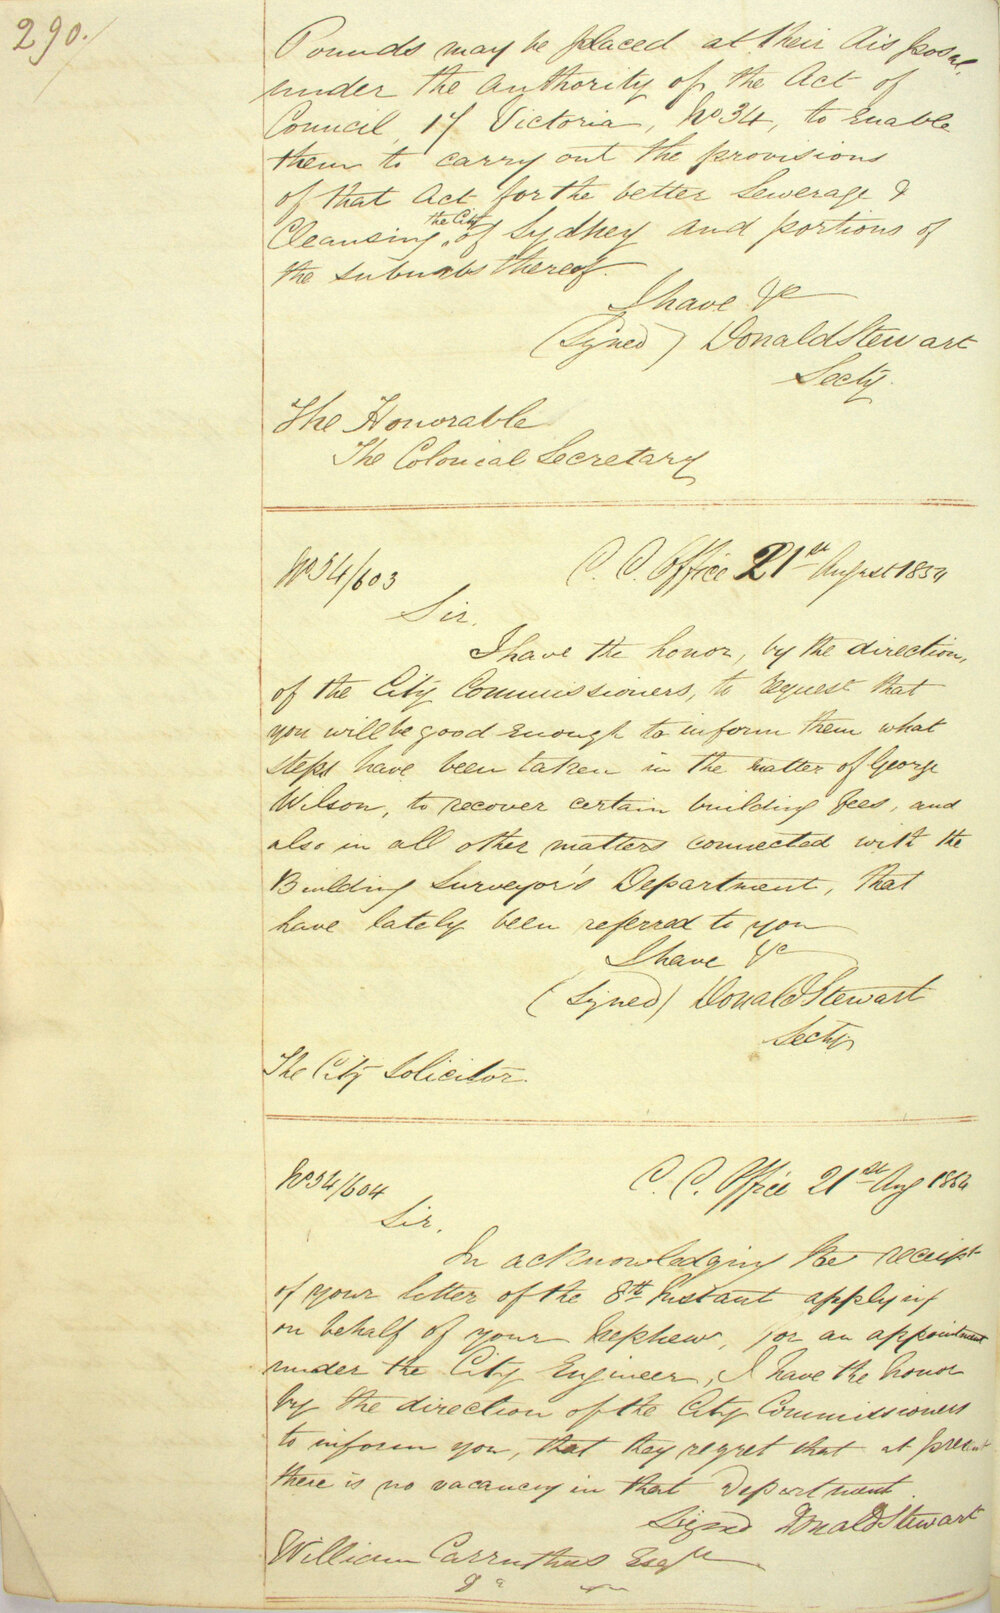 290.
Pounds may be placed at their disposal,
under the authority of the Act of
Council, 17 Victoria, No 34, to enable
them to carry out the provisions
of that Act for the better Sewerage &
Cleansing the City of Sydney and portions of
the suburbs thereof.
I have &c
(Signed) Donald Stewart
Secty.
The Honorable
The Colonial Secretary
No 54/603
C. C. Office 21st August 1854
Sir,
I have the honor, by the direction,
of the City Commissioners, to request that
you will be good enough to inform them what
steps have been taken in the matter of George
Wilson, to recover certain building fees, and
also in all other matters connected with the
Building Surveyor's Department, that
have lately been referred to you
I have &c
(Signed) Donald Stewart
Secty
The City Solicitor.
No 54/604
C. C. Office 21st Aug 1854
Sir,
In acknowledging the receipt
of your letter of the 8th Instant applying
on behalf of your Nephew, for an appointment
under the City Engineer, I have the honor
by the direction of the City Commissioners
to inform you, that they regret that at present
there is no vacancy in that Department.
Signed Donald Stewart
William Carruthers Esqre